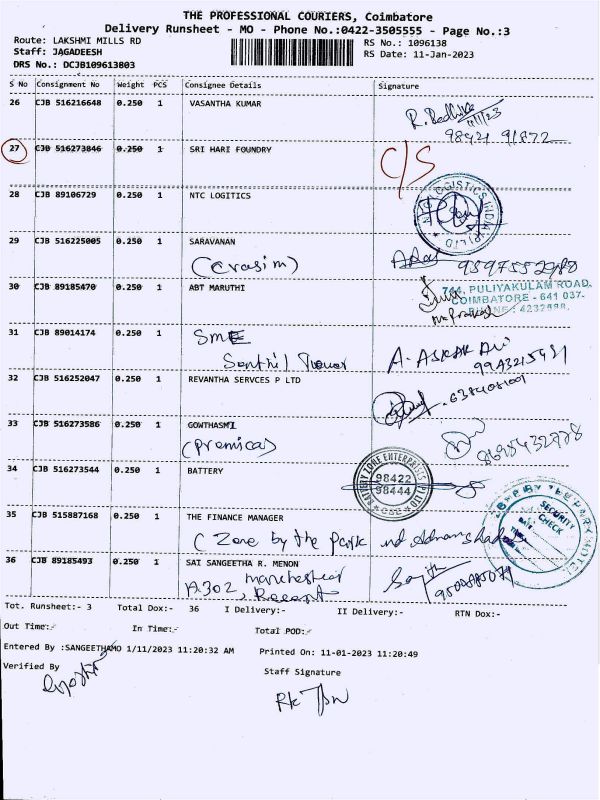 THE PROFESSIONAL COURIERS, Coimbatore
Delivery Runsheet - MO - Phone No.:0422-3505555 - Page No.:3
Route: LAKSHMI MILLS RD
Staff: JAGADEESH
DRS No.: DCJB109613803
RS No.: 1096138
RS Date: 11-Jan-2023
S No Consignment No Weight PCS Consignee Details Signature
26 CJB 516216648 0.250 1 VASANTHA KUMAR
11/1/23
98421 91872
27 CJB 516273846 0.250 1 SRI HARI FOUNDRY C/S
28 CJB 89106729 0.250 1 NTC LOGITICS
LOGISTICS INDIA (P) LTD
29 CJB 516225005 0.250 1 SARAVANAN
(Crasim)
30 CJB 89185470 0.250 1 ABT MARUTHI
744, PULIYAKULAM ROAD,
COIMBATORE - 641 037.
PHONE : 4232888.
31 CJB 89014174 0.250 1 SME
A. ASKAR ALI
9943215491
32 CJB 516252047 0.250 1 REVANTHA SERVCES P LTD
33 CJB 516273586 0.250 1 GOWTHASMI
(Premica)
34 CJB 516273544 0.250 1 BATTERY
BATTERY ZONE ENTERPRISES P LTD
98422
98444
CBE
35 CJB 515887168 0.250 1 THE FINANCE MANAGER
(Zone by the park
SECURITY
CHECK
DATE
TIME
36 CJB 89185493 0.250 1 SAI SANGEETHA R. MENON
A302, manchester
Tot. Runsheet:- 3 Total Dox:- 36 I Delivery:- II Delivery:- RTN Dox:-
Out Time:- In Time:- Total POD:-
Entered By :SANGEETHAMO 1/11/2023 11:20:32 AM Printed On: 11-01-2023 11:20:49
Verified By Staff Signature